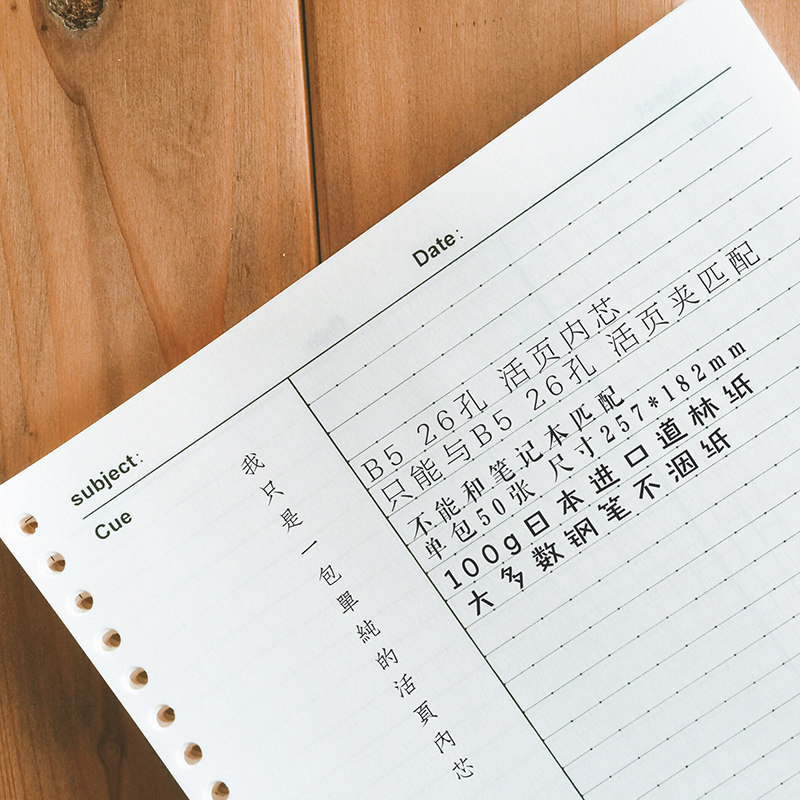 Date:
subject:
Cue
我只是一包單純的活頁內芯
B5 26孔 活页内芯
只能与B5 26孔 活页夹匹配
不能和笔记本匹配
单包50张 尺寸257*182mm
100g日本进口道林纸
大多数钢笔不洇纸